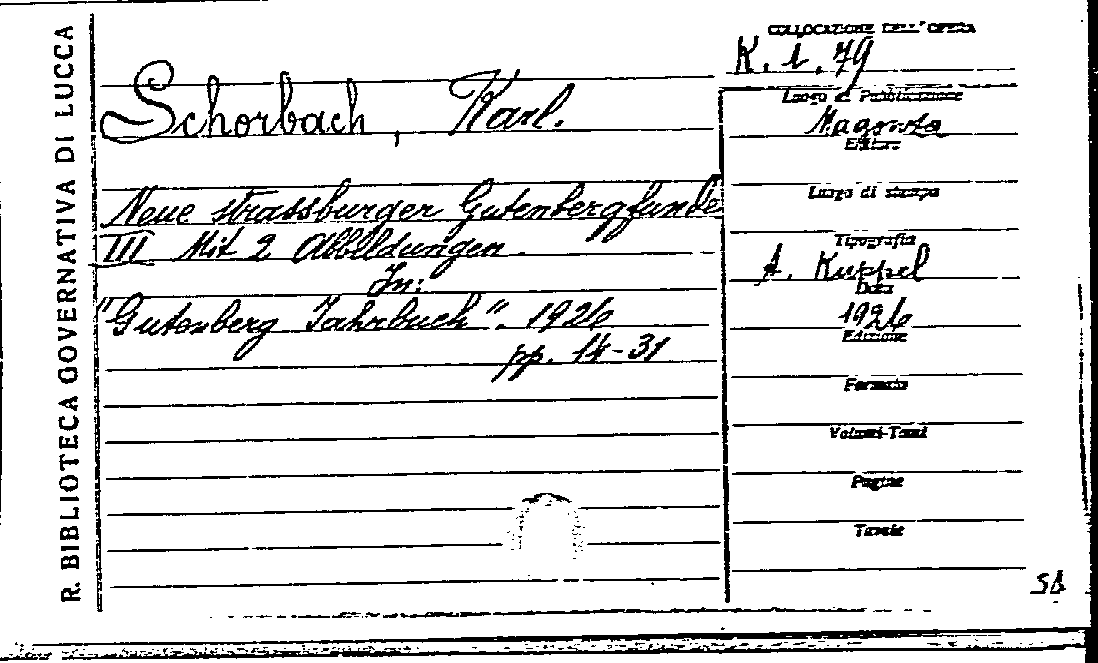 R. BIBLIOTECA GOVERNATIVA DI LUCCA
COLLOCAZIONE DELL'OPERA
K. 1. 79
Schorbach, Karl.
Neue strassburger Gutenbergfunde
III Mit 2 Abbildungen.
In:
"Gutenberg Jahrbuch". 1926
pp. 14-31
Luogo di Pubblicazione
Magonza
Editore
Luogo di stampa
Tipografia
A. Kuppel
Data
1926
Edizione
Formato
Volumi-Tomi
Pagine
Tavole